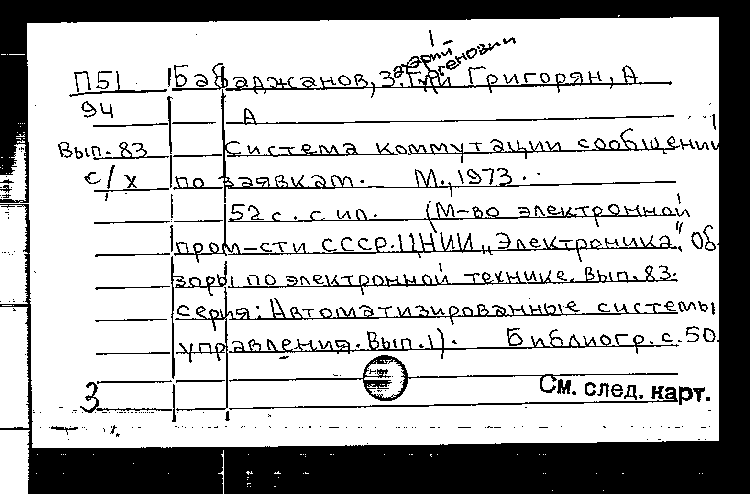 П51 Бабаджанов, З. Григорян, А
94 А
Вып. 83 Система коммутации сообщений
с/х по заявкам. М., 1973.
52 с. с ил. (М-во электронной
пром-сти СССР. ЦНИИ „Электроника". Об-
зоры по электронной технике. Вып. 83.
серия: Автоматизированные системы
управления. Вып. 1). Библиогр. с. 50.
3 См. след. карт.